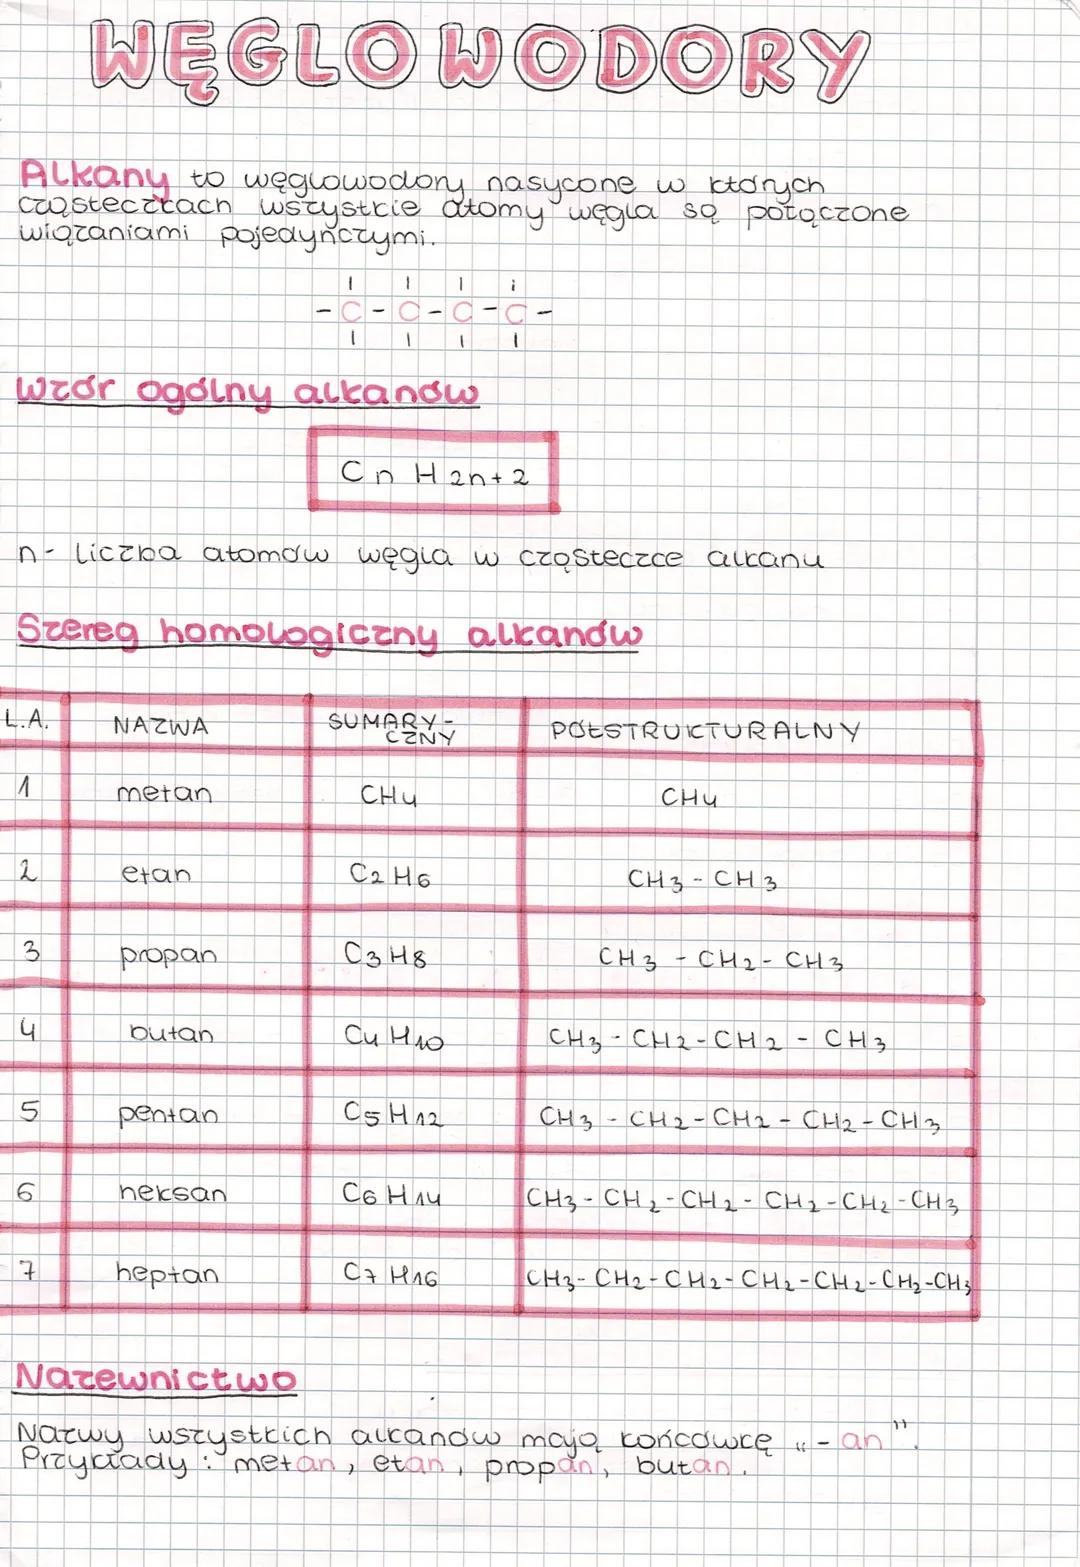 WĘGLOWODORY
Alkany to węglowodory nasycone w których
cząsteczkach wszystkie atomy węgla są połączone
wiązaniami pojedyńczymi.
- C - C - C - C -
Wzór ogólny alkanów
Cn H2n+2
n- liczba atomów węgla w cząsteczce alkanu
Szereg homologiczny alkanów
L.A. NAZWA SUMARY-CZNY PÓŁSTRUKTURALNY
1 metan CH4 CH4
2 etan C2H6 CH3 - CH3
3 propan C3H8 CH3 - CH2 - CH3
4 butan C4H10 CH3 - CH2 - CH2 - CH3
5 pentan C5H12 CH3 - CH2 - CH2 - CH2 - CH3
6 heksan C6H14 CH3 - CH2 - CH2 - CH2 - CH2 - CH3
7 heptan C7H16 CH3 - CH2 - CH2 - CH2 - CH2 - CH2 - CH3
Nazewnictwo
Nazwy wszystkich alkanów mają końcówkę „- an”.
Przykłady : metan, etan, propan, butan.